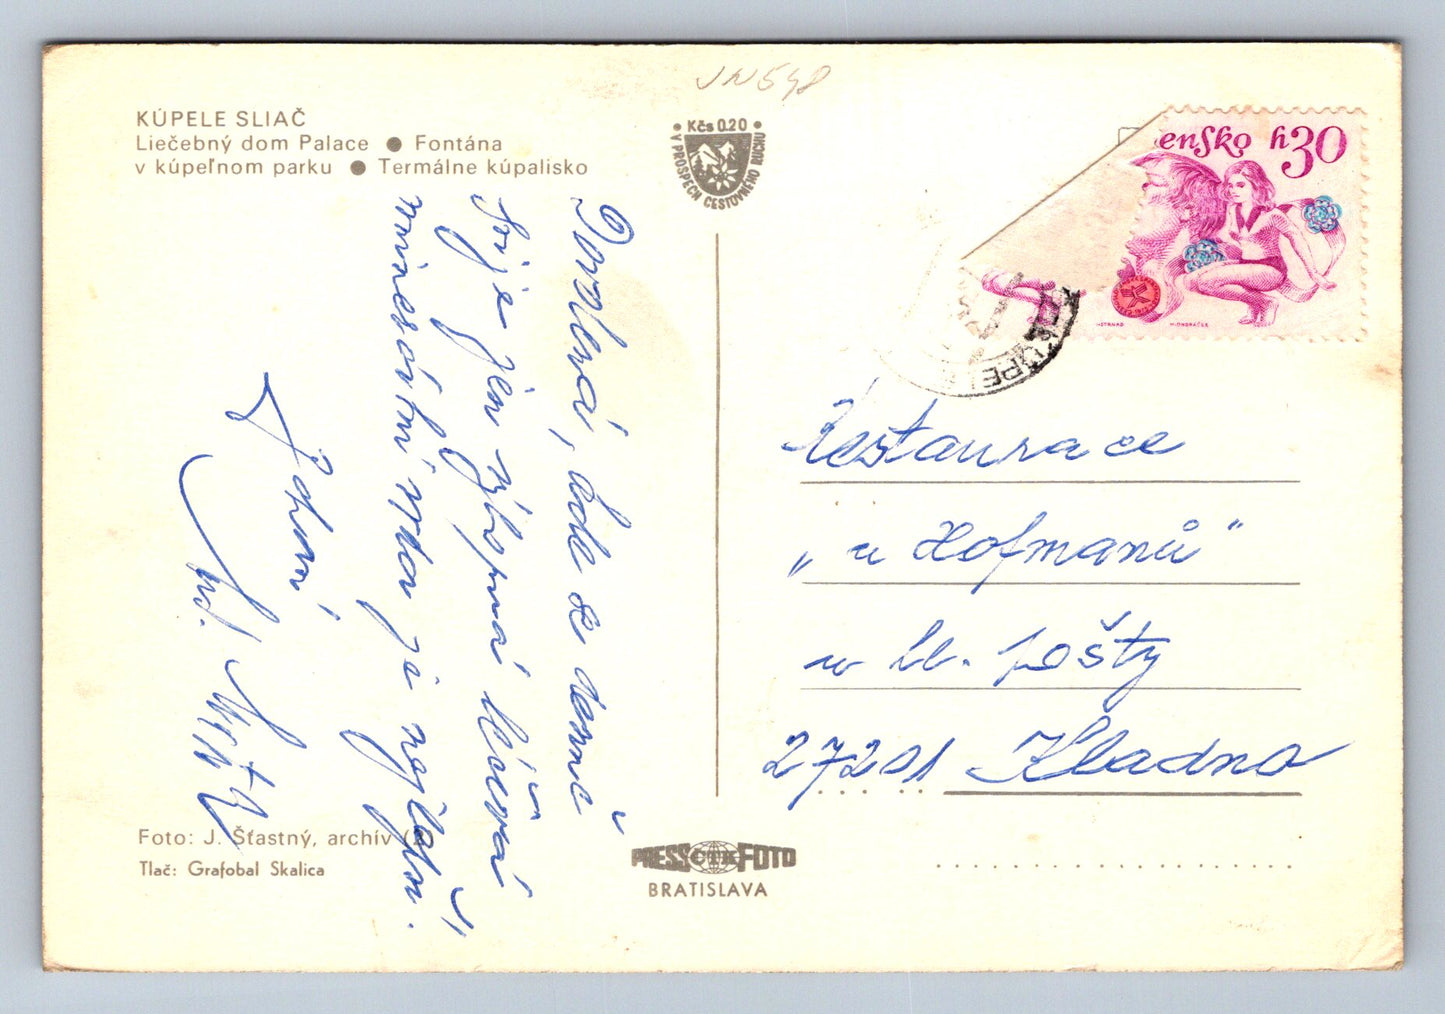 JN548
KÚPELE SLIAČ
Liečebný dom Palace ● Fontána
v kúpeľnom parku ● Termálne kúpalisko
• Kčs 0.20 •
V PROSPECH CESTOVNÉHO RUCHU
ensko h30
STRNAD
M·ONDRÁČEK
KÚPELE
zde se denně
je jen výborná léčivá
minerální voda je nejlepší.
Restaurace
„u Hofmanů"
u hl. pošty
27201 Kladno
Foto: J. Šťastný, archív (2)
Tlač: Grafobal Skalica
PRESS ČTK FOTO
BRATISLAVA